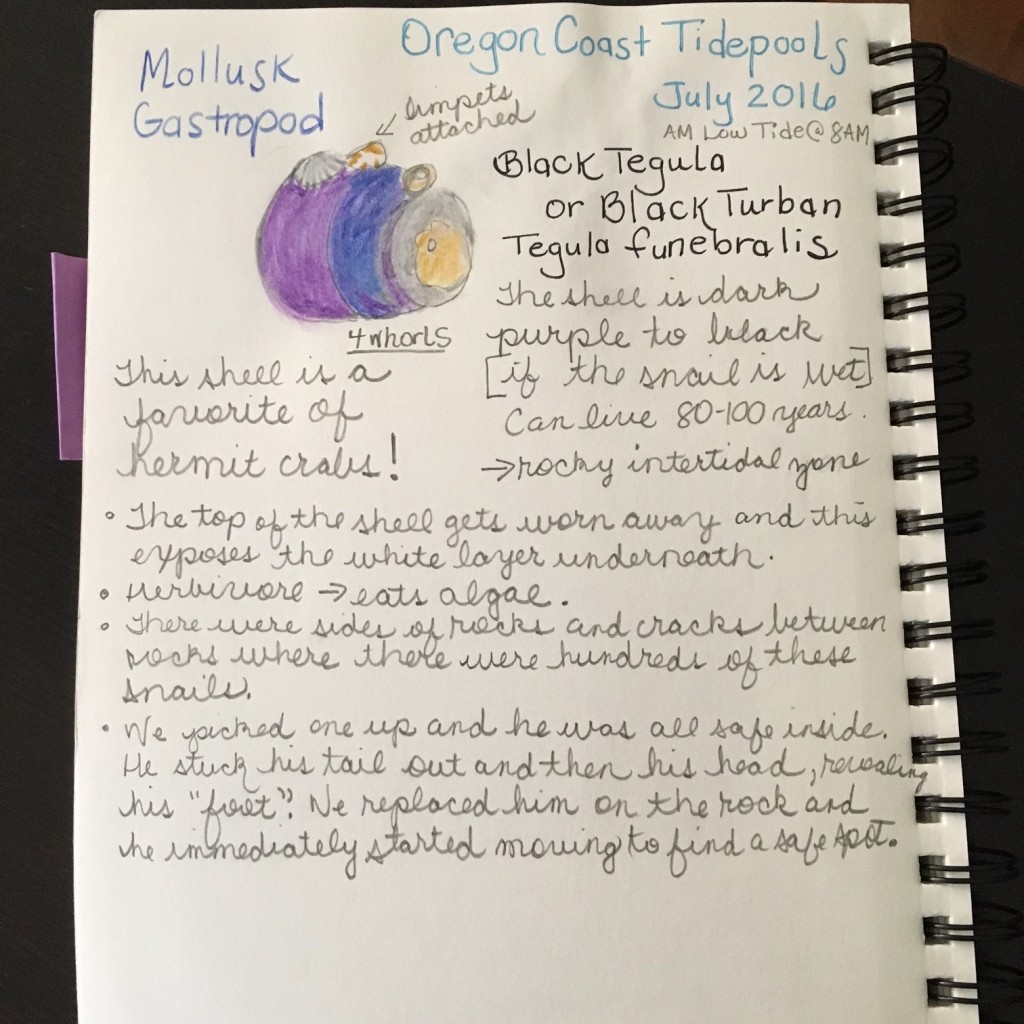 Mollusk
Gastropod
Oregon Coast Tidepools
July 2016
AM Low Tide @ 8AM
limpets
attached
Black Tegula
or Black Turban
Tegula funebralis
4 whorls
The shell is dark
purple to black
[if the snail is wet]
Can live 80-100 years.
→ rocky intertidal zone
This shell is a
favorite of
hermit crabs!
• The top of the shell gets worn away and this
exposes the white layer underneath.
• Herbivore → eats algae.
• There were sides of rocks and cracks between
rocks where there were hundreds of these
snails.
• We picked one up and he was all safe inside.
He stuck his tail out and then his head, revealing
his "foot". We replaced him on the rock and
he immediately started moving to find a safe spot.